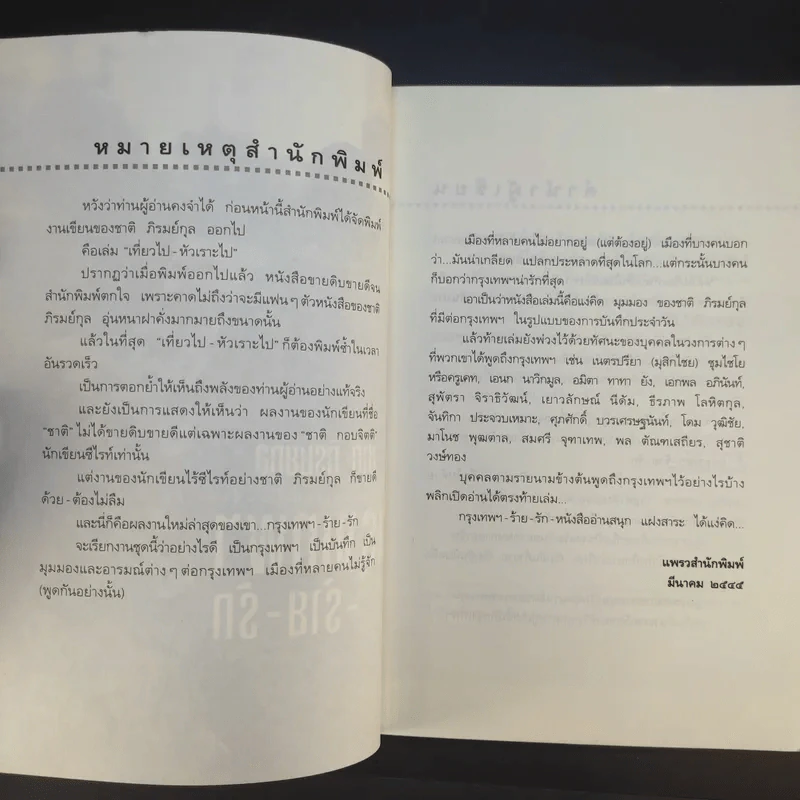 หมายเหตุสำนักพิมพ์
หวังว่าท่านผู้อ่านคงจำได้ ก่อนหน้านี้สำนักพิมพ์ได้จัดพิมพ์
งานเขียนของชาติ ภิรมย์กุล ออกไป
คือเล่ม "เที่ยวไป-หัวเราะไป"
ปรากฏว่าเมื่อพิมพ์ออกไปแล้ว หนังสือขายดิบขายดีจน
สำนักพิมพ์ตกใจ เพราะคาดไม่ถึงว่าจะมีแฟนๆ ตัวหนังสือของชาติ
ภิรมย์กุล อุ่นหนาฝาคั่งมากมายถึงขนาดนั้น
แล้วในที่สุด "เที่ยวไป-หัวเราะไป" ก็ต้องพิมพ์ซ้ำในเวลา
อันรวดเร็ว
เป็นการตอกย้ำให้เห็นถึงพลังของท่านผู้อ่านอย่างแท้จริง
และยังเป็นการแสดงให้เห็นว่า ผลงานของนักเขียนที่ชื่อ
"ชาติ" ไม่ได้ขายดิบขายดีแต่เฉพาะผลงานของ "ชาติ กอบจิตติ"
นักเขียนซีไรท์เท่านั้น
แต่งานของนักเขียนไร้ซีไรท์อย่างชาติ ภิรมย์กุล ก็ขายดี
ด้วย-ต้องไม่ลืม
และนี่ก็คือผลงานใหม่ล่าสุดของเขา...กรุงเทพฯ-ร้าย-รัก
จะเรียกงานชุดนี้ว่าอย่างไรดี เป็นกรุงเทพฯ เป็นบันทึก เป็น
มุมมองและอารมณ์ต่างๆ ต่อกรุงเทพฯ เมืองที่หลายคนไม่รู้จัก
(พูดกันอย่างนั้น)
เมืองที่หลายคนไม่อยากอยู่ (แต่ต้องอยู่) เมืองที่บางคนบอก
ว่า...มันน่าเกลียด แปลกประหลาดที่สุดในโลก...แต่กระนั้นบางคน
ก็บอกว่ากรุงเทพฯน่ารักที่สุด
เอาเป็นว่าหนังสือเล่มนี้คือแง่คิด มุมมอง ของชาติ ภิรมย์กุล
ที่มีต่อกรุงเทพฯ ในรูปแบบของการบันทึกประจำวัน
แล้วท้ายเล่มยังพ่วงไว้ด้วยทัศนะของบุคคลในวงการต่างๆ
ที่พวกเขาได้พูดถึงกรุงเทพฯ เช่น เนตรปรียา (มุสิกไชย) ชุมไชโย
หรือครูเคท, เอนก นาวิกมูล, อมิตา ทาทา ยัง, เอกพล อภินันท์,
สุพัตรา จิราธิวัฒน์, เยาวลักษณ์ นีดัม, ธีรภาพ โลหิตกุล,
จันทิกา ประจวบเหมาะ, ศุภศักดิ์ บวรเศรษฐนันท์, โดม วุฒิชัย,
มาโนช พุฒตาล, สมศรี จุฑาเทพ, พล ตัณฑเสถียร, สุชาติ
วงษ์ทอง
บุคคลตามรายนามข้างต้นพูดถึงกรุงเทพฯไว้อย่างไรบ้าง
พลิกเปิดอ่านได้ตรงท้ายเล่ม...
กรุงเทพฯ-ร้าย-รัก-หนังสืออ่านสนุก แฝงสาระ ได้แง่คิด...
แพรวสำนักพิมพ์
มีนาคม ๒๕๔๕